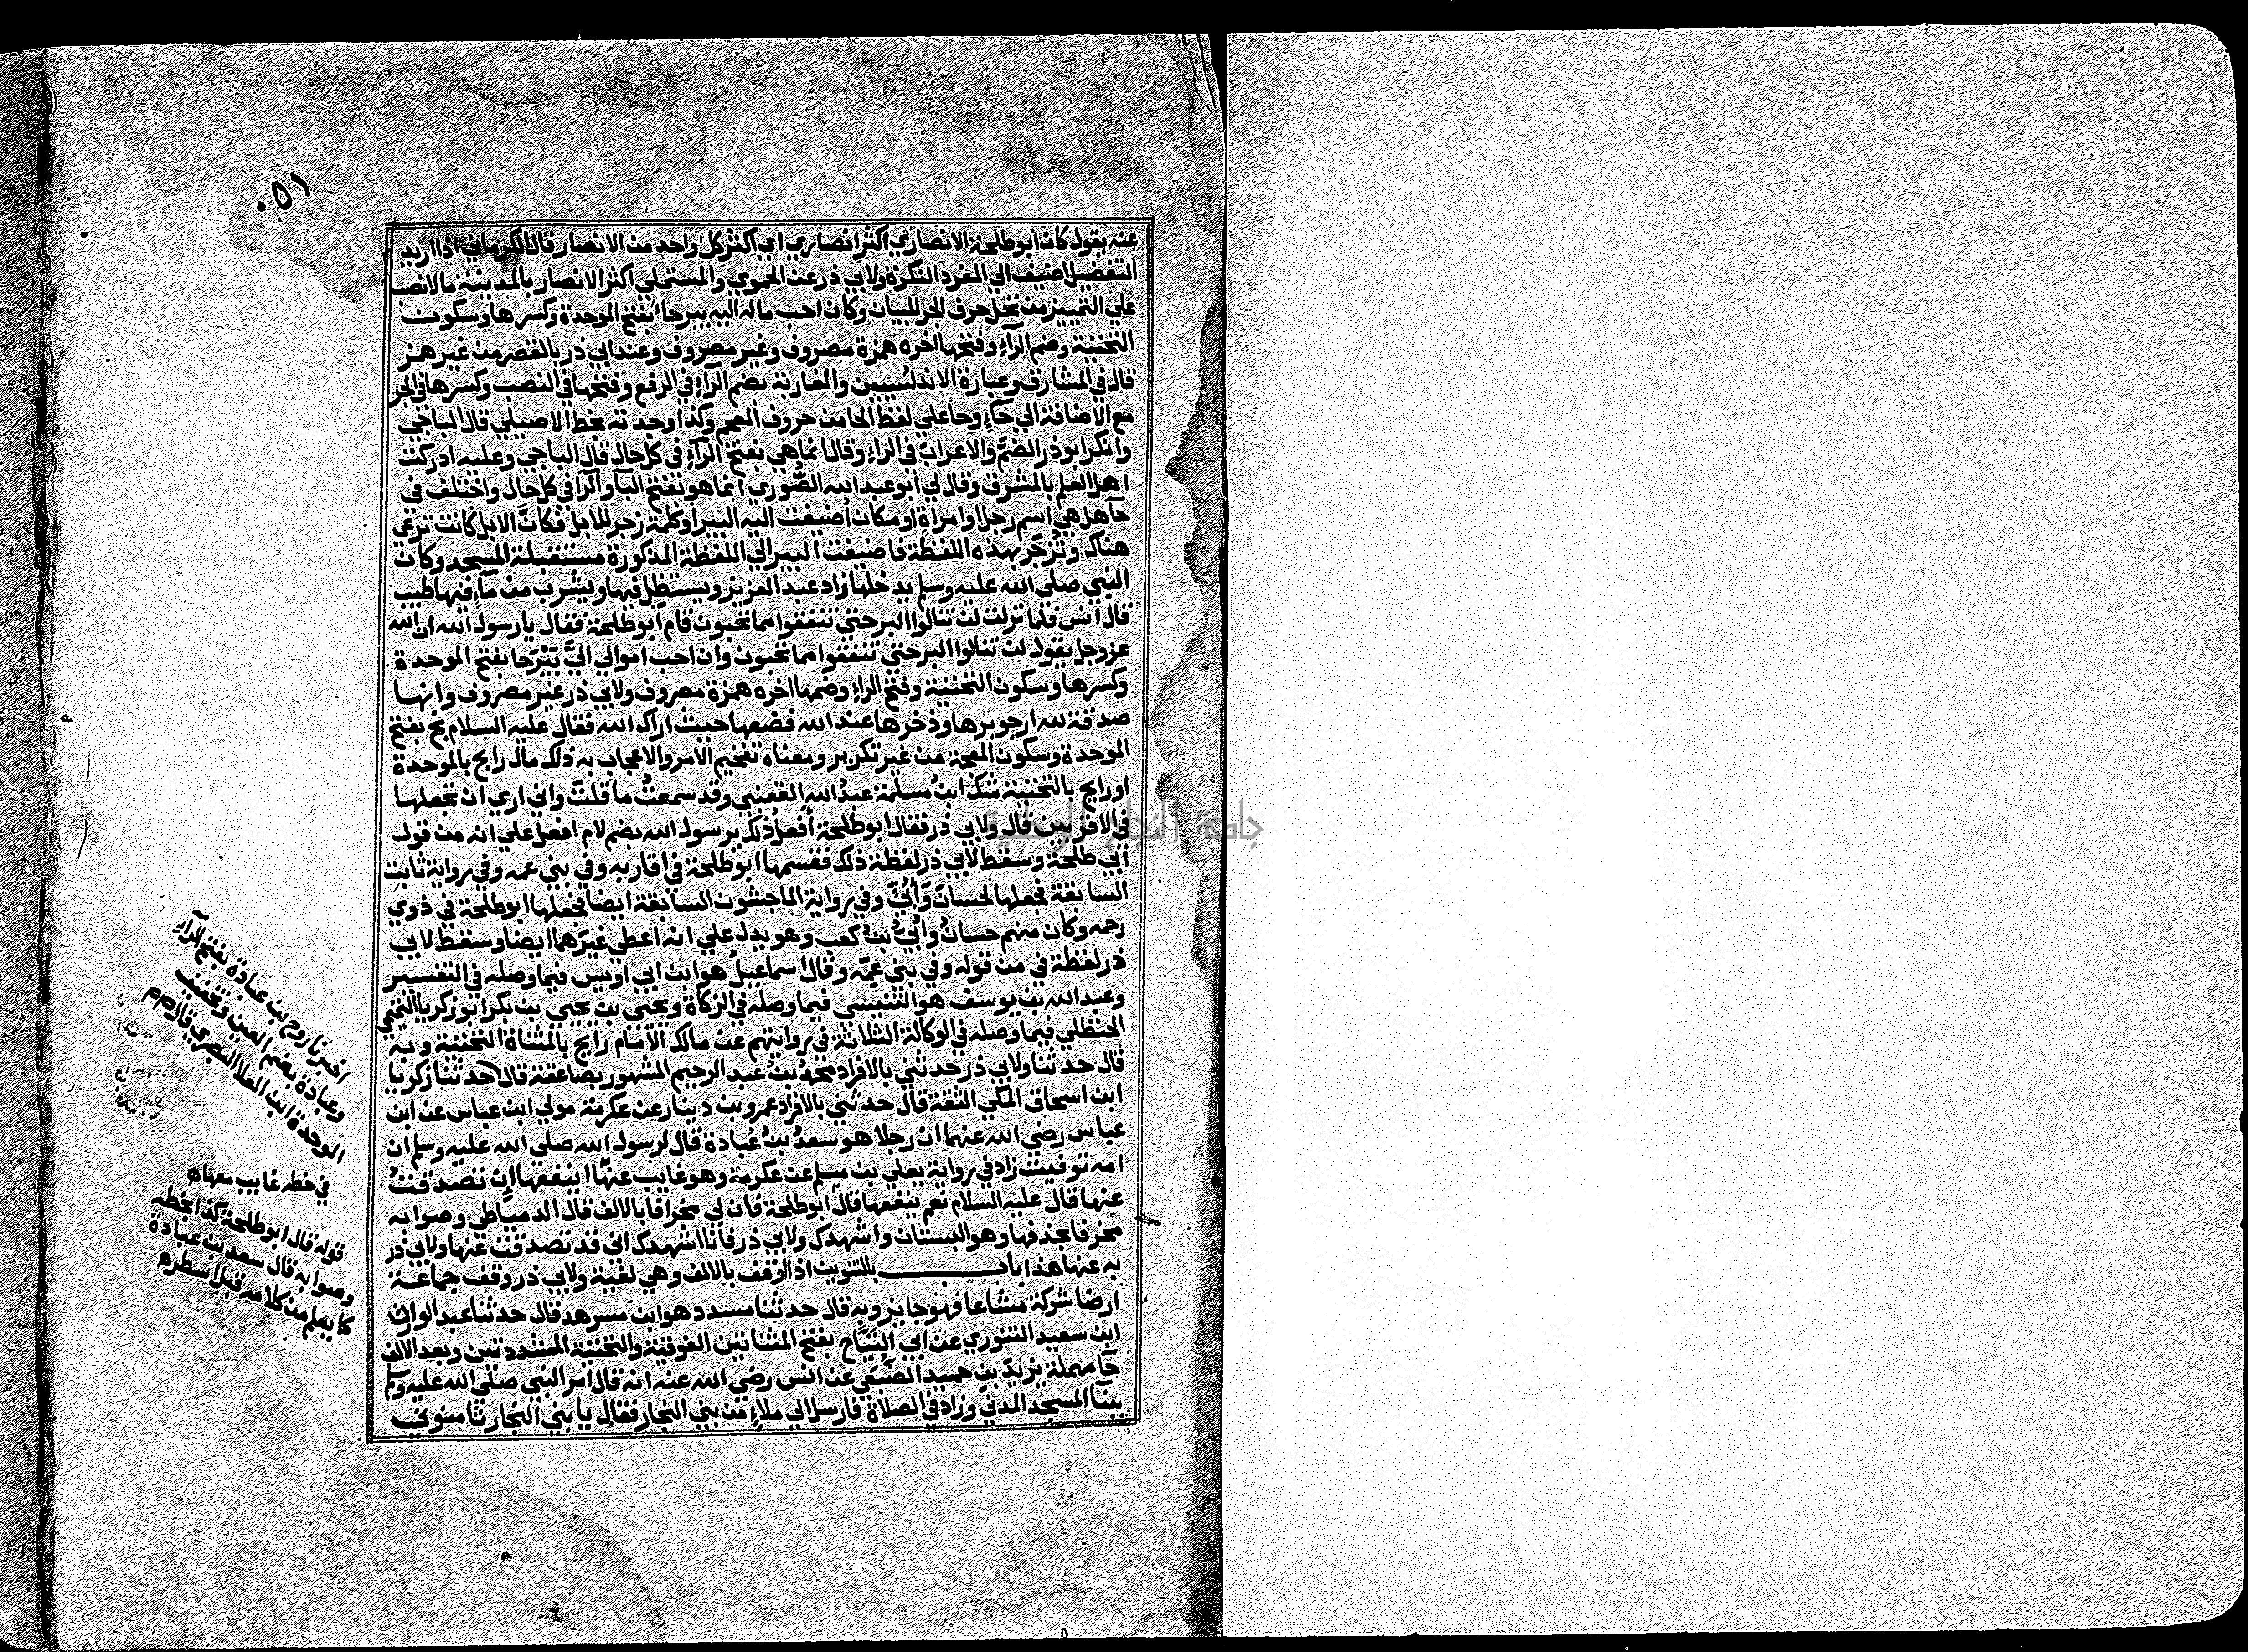 ٠٥١
عنه يقول كان ابو طلحة الانصاري اكثر انصاري اي اكثر كل واحد من الانصار قال الكرماني اذا اريد
التفضيل اضيف الي المفرد النكرة ولابي ذر عن الحموي والمستملي اكثر الانصار بالمدينة مالا نصب
علي التمييز من نخل حرف الجر للبيان وكان احب ماله اليه بيرحاء بفتح الموحدة وكسرها وسكون
التحتية وضم الرآء وفتحها اخره همزة مصروف وغير مصروف وعند ابي ذر بالقصر من غير همز
قال في المشارق وعبارة الاندلسيين والمغاربة بضم الرآء في الرفع وفتحها في النصب وكسرها في الجر
مع الاضافة الي حآء وحا علي لفظ الحا من حروف المعجم وكذا وجدته بخط الاصيلي قال الباجي
وانكر ابو ذر الضمَّ والاعراب في الراء وقال انما هي بفتح الرآء في كل حال قال الباجي وعليه ادركت
اهل العلم بالمشرق وقال لي ابو عبد الله الصُّوري انما هو بفتح البآ والرآ في كل حال واختلف في
حآ هل هي اسم رجل او امراة او مكان أضيفت اليه البير او كلمة زجر للابل فكانَّ الابل كانت ترعي
هناك وتُزجَر بهذه اللفظة فاضيفت البير الي اللفظة المذكورة مستقبلة المسجد وكان
النبي صلى الله عليه وسلم يدخلها زاد عبد العزيز ويستظِل فيها ويشرب من مآءٍ فيها طيب
قال انس فلما نزلت لن تنالوا البر حتي تنفقوا مما تحبون قام ابو طلحة فقال يا رسول الله ان الله
عز وجل يقول لن تنالوا البر حتي تنفقوا مما تحبون وان احب اموالي اليَّ بَيْرَحا بفتح الموحدة
وكسرها وسكون التحتية وفتح الراء وضمها اخره همزة مصروف ولابي ذر غير مصروف وانها
صدقة لله ارجو برها وذخرها عند الله فضعها حيث اراك الله فقال عليه السلام بخ بفتح
الموحدة وسكون المعجمة من غير تكرير ومعناه تفخيم الامر والاعجاب به ذلك مال رابح بالموحدة
او رايح بالتحتية شكَّ ابنُ مسلمة عبدُ الله القعنبي وقد سمعتُ ما قلتَ واني اري ان تجعلها
في الاقربين قال ولابي ذر فقال ابو طلحة أفعلُ ذلك يرسول الله بضم لام افعل علي انه من قول
ابي طلحة وسقط لابي ذر لفظة ذلك فقسمها ابو طلحة في اقاربه وفي بني عمه وفي رواية ثابت
السابقة فجعلها لحسان وَأُبَيٍّ وفي رواية الماجشون السابقة ايضا فجعلها ابو طلحة في ذوي
رحمه وكان منهم حسانُ وأبيُّ بنُ كعب وهو يدل علي انه اعطي غيرَهما ايضا وسقط لابي
ذر لفظة في من قوله وفي بني عمِّه وقال اسماعيلُ هو ابن ابي اويس فيما وصله في التفسير
وعبد الله بن يوسف هو التنيسي فيما وصله في الزكاة ويحيى بن يحيي بن بكر ابو زكريا التميمي
الحنظلي فيما وصله في الوكالة الثلاثة في روايتهم عن مالك الامام رايح بالمثناة التحتية وبه
قال حدثنا ولابي ذر حدثني بالافراد محمدُ بنُ عبد الرحيم المشهور بصاعقة قال حدثنا زكريا
ابن اسحاق المكي الثقة قال حدثني بالافراد عمرو بن دينار عن عكرمة مولي ابن عباس عن ابن
عباس رضي الله عنهما ان رجلا هو سعدُ بنُ عُبادة قال لرسول الله صلي الله عليه وسلم ان
امه توفيت زاد في رواية يعلي بن مسلم عن عكرمة وهو غايب عنها اينفعها اِن تصدقتُ
عنها قال عليه السلام نعم ينفعها قال ابو طلحة فان لي مخرافا بالالف قال الدمياطي وصوابه
مخرفا بحذفها وهو البستان واشهدك ولابي ذر فانا اشهدك اني قد تصدقت عنها ولابي ذر
به عنها هذا باب بالتنوين اذا اوقف بالالف وهي لغية ولابي ذر وقف جماعة
ارضا شركة مشاعا فهو جايز وبه قال حدثنا مسدد هو ابن مسرهد قال حدثنا عبد الوارث
ابن سعيد التنوري عن ابي التيَّاح بفتح المثناتين الفوقية والتحتية المشددتين وبعد الالف
حآ مهملة يزيدَ بنِ حميد الضبَعي عن انس رضي الله عنه انه قال امر النبي صلي الله عليه وسلم
ببنآ المسجد المدني وزاد في الصلاة فارسل الي ملاءٍ من بني النجار فقال يا بني النجار ثامنوني
اخبرنا روح بن عبادة بفتح الرآء
وعبادة بضم العين وتخفيف
الموحدة ابن العلا البصري قال
في خطه غايب معهاه
قوله قال ابو طلحة كذا بخطه
وصوابه قال سعد بن عبادة
كما يعلم من كلامه قبل اسطره
جامعة